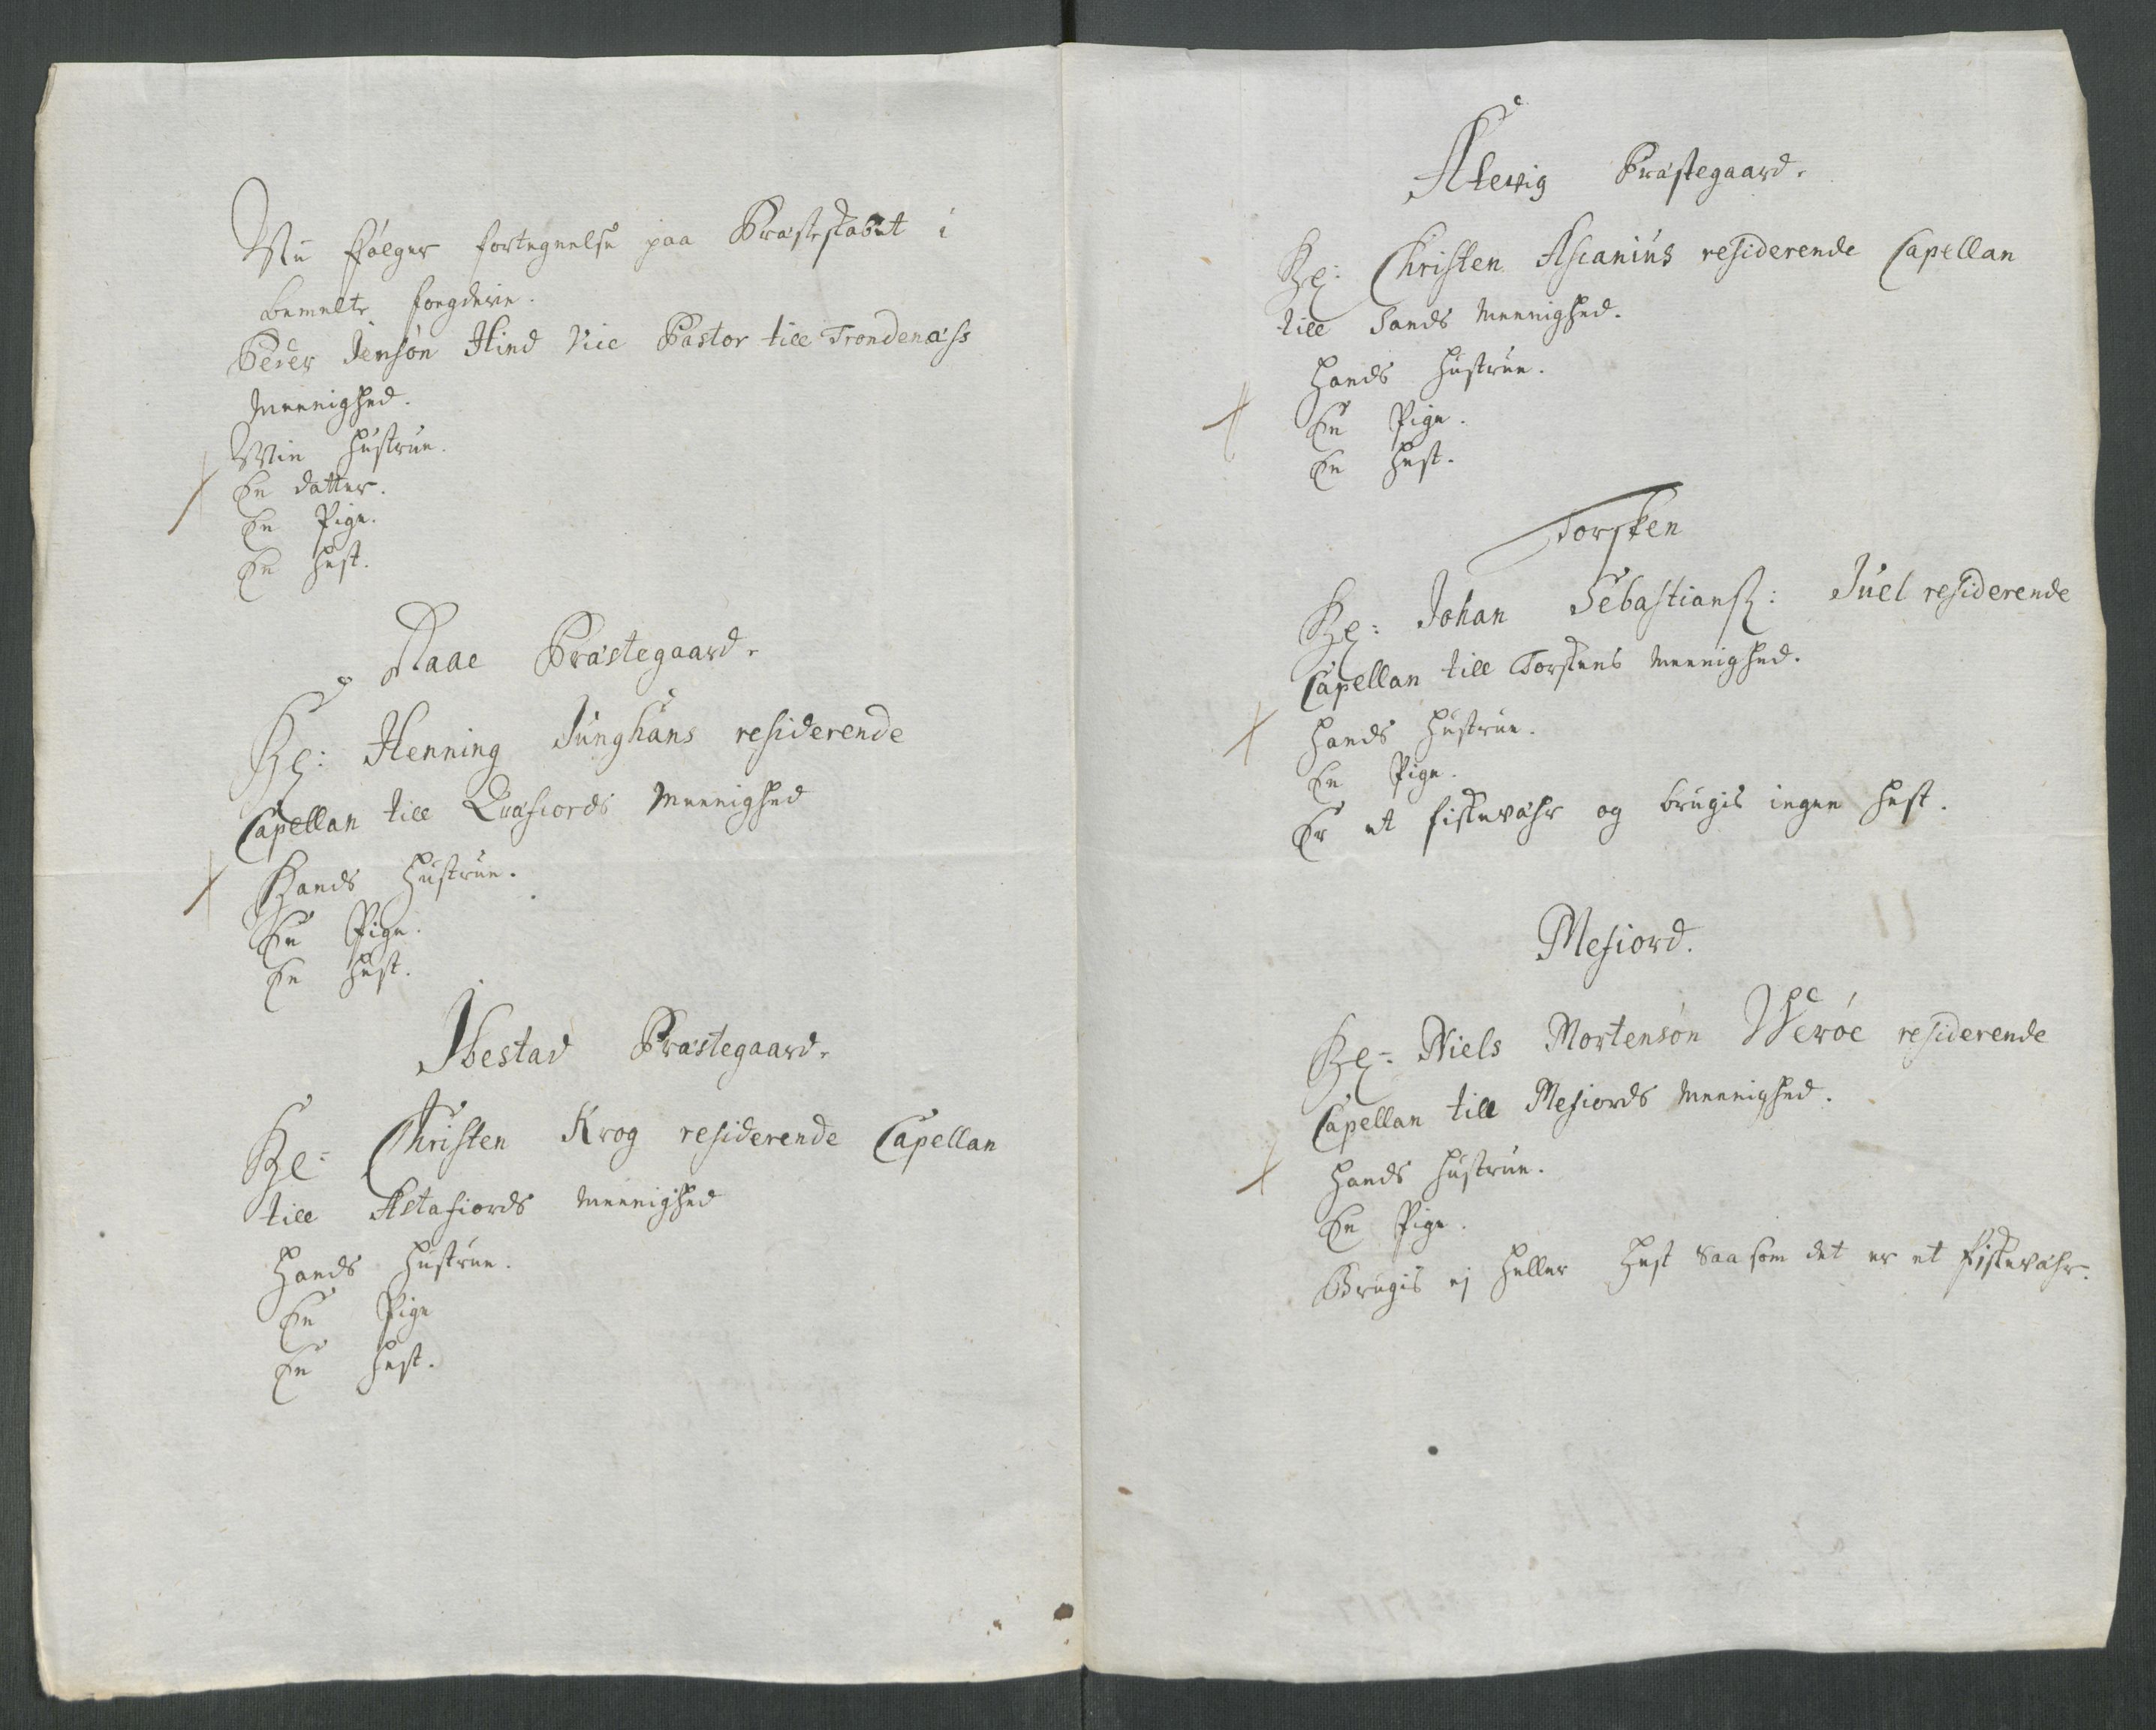 Nu følger fortegnelse paa Præsteskabet i
bemelte foegderie.
Peder Jensøn Hind Vice Pastor till Trondenæss
Meenighed.
Min Hustrue.
En datter.
En Pige.
En Hest.
Raae Præstegaard.
Hr: Henning Junghans residerende
Capellan till Qvæfiords Meenighed
Hands Hustrue.
En Pige.
En Hest.
Ibestad Præstegaard.
Hr: Christen Krog residerende Capellan
till Astafiords meenighed
Hands Hustrue.
En Pige
En Hest.
Alevig Præstegaard.
Hr: Christen Ascanius residerende Capellan
till Sands meenighed.
Hands Hustrue.
En Pige.
En Hest.
Torsken
Hr: Johan Sebastians: Juel residerende
Capellan till Torskens meenighed.
Hands Hustrue.
En Pige.
Er et fiskevæhr og brugis ingen Hest.
Mefiord.
Hr: Niels Mortensøn Werøe residerende
Capellan till Mefiords meenighed.
Hands Hustrue.
En Pige.
Brugis ej heller Hest saasom det er et fiskevæhr.